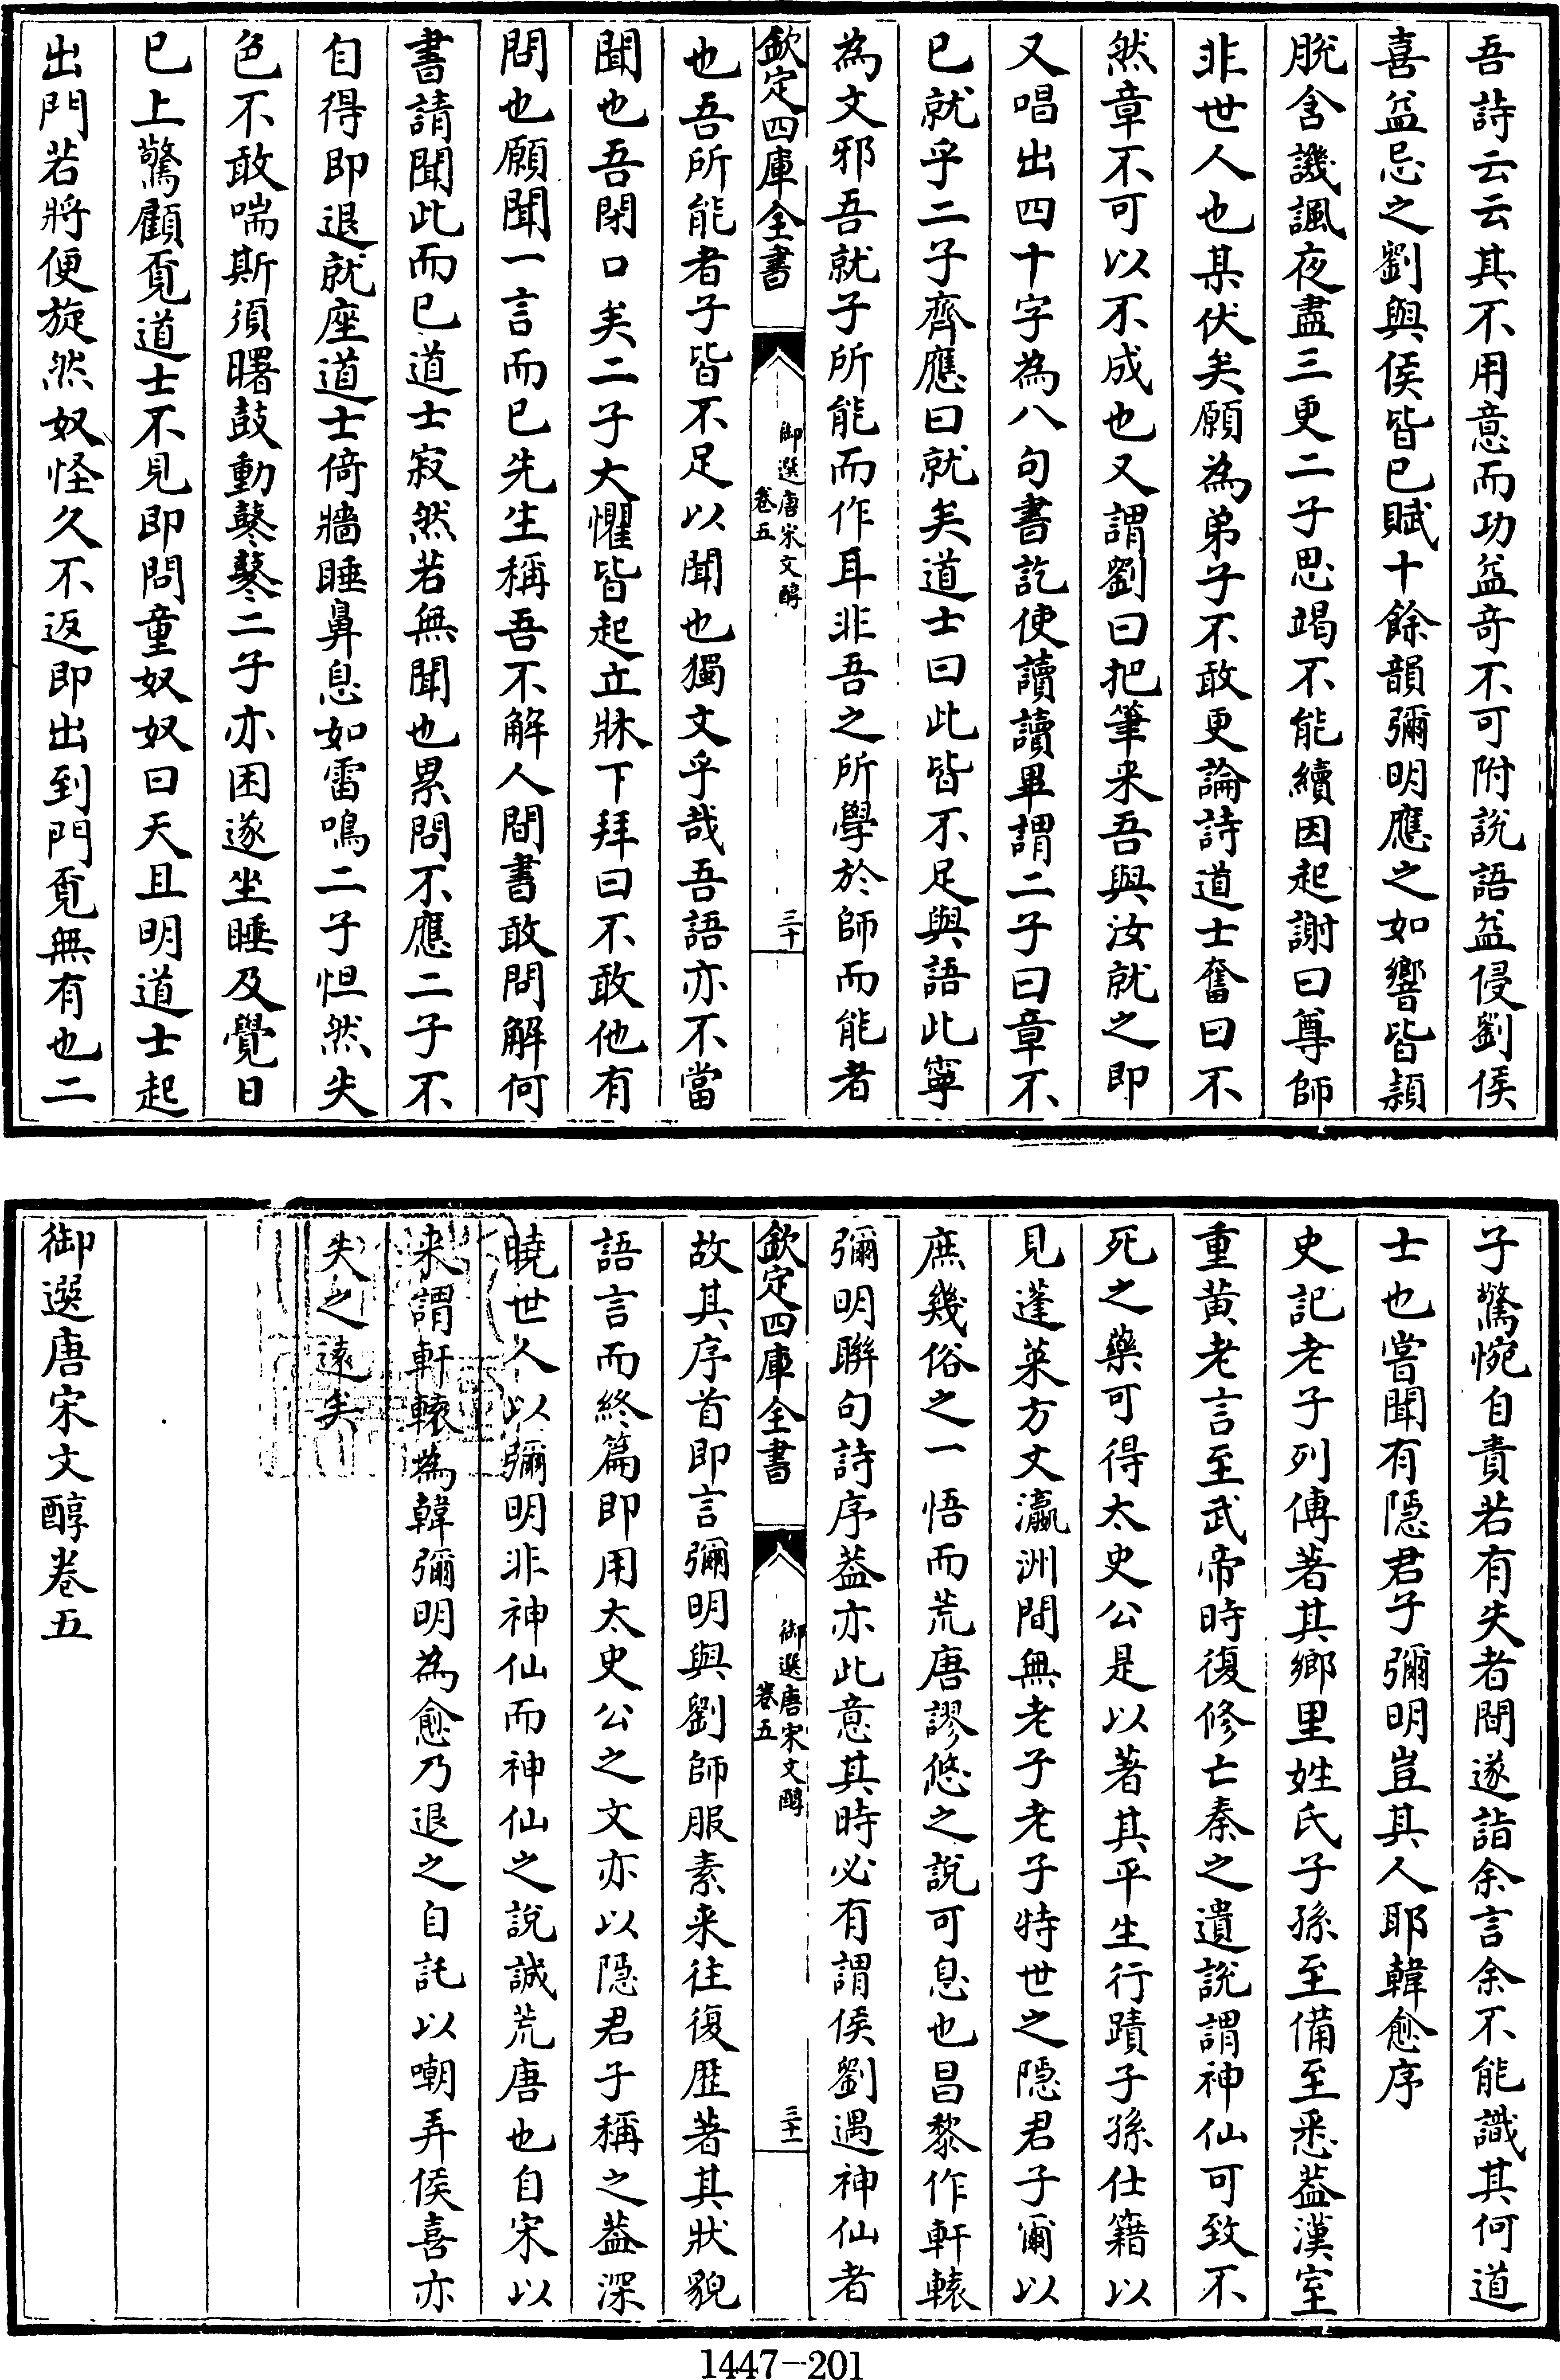 吾詩云云其不用意而功益奇不可附說語益侵劉侯
喜益忌之劉與侯皆已賦十餘韻彌明應之如響皆頴
脫含譏諷夜盡三更二子思竭不能續因起謝曰尊師
非世人也某伏矣願為弟子不敢更論詩道士奮曰不
然章不可以不成也又謂劉曰把筆来吾與汝就之即
又唱出四十字為八句書訖使讀讀畢謂二子曰章不
已就乎二子齊應曰就矣道士曰此皆不足與語此寜
為文邪吾就子所能而作耳非吾之所學於師而能者
欽定四庫全書
御選唐宋文醇
卷五
三十
也吾所能者子皆不足以聞也獨文乎哉吾語亦不當
聞也吾閉口矣二子大懼皆起立牀下拜曰不敢他有
問也願聞一言而已先生稱吾不解人間書敢問解何
書請聞此而已道士寂然若無聞也累問不應二子不
自得即退就座道士倚牆睡鼻息如雷鳴二子怛然失
色不敢喘斯須曙鼓動鼕鼕二子亦困遂坐睡及覺日
已上驚顧覔道士不見即問童奴奴曰天且明道士起
出門若將便旋然奴怪久不返即出到門覔無有也二
子驚惋自責若有失者間遂詣余言余不能識其何道
士也嘗聞有隠君子彌明豈其人耶韓愈序
史記老子列傳著其鄉里姓氏子孫至備至悉葢漢室
重黄老言至武帝時復修亡秦之遺說謂神仙可致不
死之藥可得太史公是以著其平生行蹟子孫仕籍以
見蓬莱方丈瀛洲間無老子老子特世之隠君子爾以
庶幾俗之一悟而荒唐謬悠之說可息也昌黎作軒轅
彌明聨句詩序葢亦此意其時必有謂侯劉遇神仙者
欽定四庫全書
御選唐宋文醇
卷五
三十一
故其序首即言彌明與劉師服素来往復歴著其狀貌
語言而終篇即用太史公之文亦以隠君子稱之葢深
曉世人以彌明非神仙而神仙之說誠荒唐也自宋以
来謂軒轅為韓彌明為愈乃退之自託以嘲弄侯喜亦
失之遠矣
御選唐宋文醇卷五
1447-201